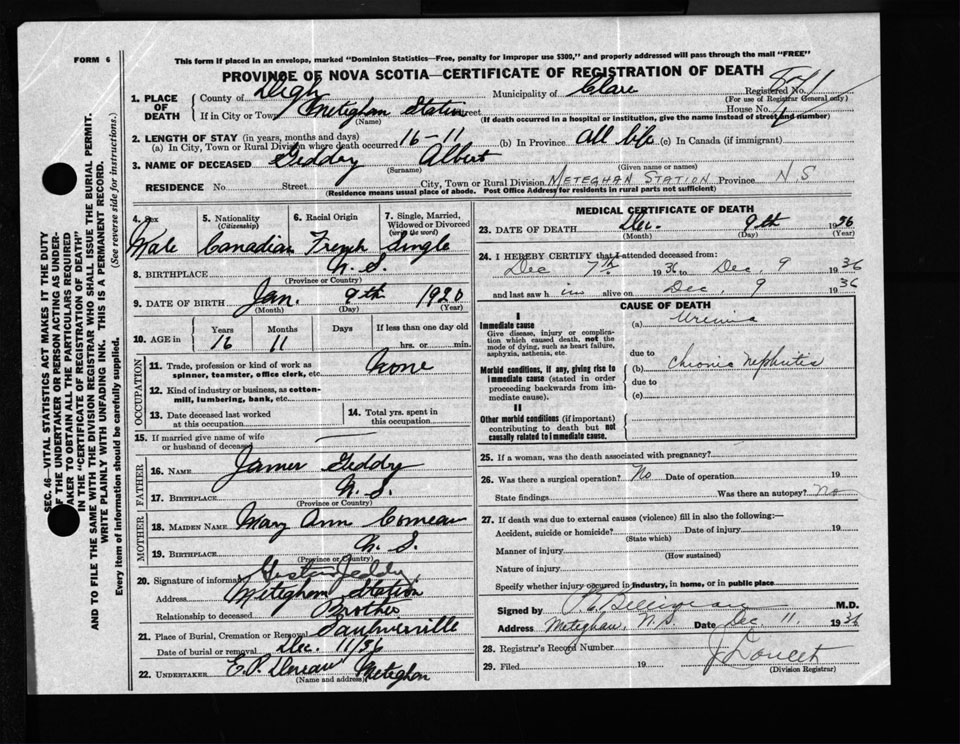 FORM 6
This form if placed in an envelope, marked "Dominion Statistics—Free, penalty for improper use $300," and properly addressed will pass through the mail "FREE"
PROVINCE OF NOVA SCOTIA—CERTIFICATE OF REGISTRATION OF DEATH
1. PLACE OF DEATH
County of Digby Municipality of Clare Registered No.
(For use of Registrar General only)
If in City or Town Meteghan Station Street House No.
(Name) (If death occurred in a hospital or institution, give the name instead of street and number)
2. LENGTH OF STAY (in years, months and days)
(a) In City, Town or Rural Division where death occurred 16-11 (b) In Province All life (c) In Canada (if immigrant)
3. NAME OF DECEASED Geddry Albert
(Surname) (Given name or names)
RESIDENCE No. Street City, Town or Rural Division METEGHAN STATION Province N S
(Residence means usual place of abode. Post Office Address for residents in rural parts not sufficient)
4. Sex
Male
5. Nationality
(Citizenship)
Canadian
6. Racial Origin
French
7. Single, Married, Widowed or Divorced
(write the word)
Single
8. BIRTHPLACE N. S.
(Province or Country)
9. DATE OF BIRTH Jan. 9th 1920
(Month) (Day) (Year)
10. AGE in Years Months Days If less than one day old
16 11 hrs. or min.
OCCUPATION
11. Trade, profession or kind of work as spinner, teamster, office clerk, etc. None
12. Kind of industry or business, as cotton-mill, lumbering, bank, etc.
13. Date deceased last worked at this occupation
14. Total yrs. spent in this occupation
15. If married give name of wife or husband of deceased
FATHER
16. NAME James Geddry
17. BIRTHPLACE N. S.
(Province or Country)
MOTHER
18. MAIDEN NAME Mary Ann Comeau
19. BIRTHPLACE N. S.
(Province or Country)
20. Signature of informant Geddry
Address Meteghan Station
Relationship to deceased Brother
21. Place of Burial, Cremation or Removal Saulnierville
Date of burial or removal Dec. 11/36
22. UNDERTAKER E.P. Comeau Meteghan
(Name and address)
MEDICAL CERTIFICATE OF DEATH
23. DATE OF DEATH Dec. 9th 1936
(Month) (Day) (Year)
24. I HEREBY CERTIFY that I attended deceased from:
Dec 7th 1936 to Dec. 9 1936
and last saw him alive on Dec. 9 1936
CAUSE OF DEATH
I
Immediate cause
Give disease, injury or complication which caused death, not the mode of dying, such as heart failure, asphyxia, asthenia, etc.
(a) Uremia
due to
Morbid conditions, if any, giving rise to immediate cause (stated in order proceeding backwards from immediate cause).
(b) Chronic nephritis
due to
(c)
II
Other morbid conditions (if important) contributing to death but not causally related to immediate cause.
25. If a woman, was the death associated with pregnancy?
26. Was there a surgical operation? No Date of operation 19
State findings Was there an autopsy? No
27. If death was due to external causes (violence) fill in also the following:—
Accident, suicide or homicide? Date of injury 19
(State which)
Manner of injury
(How sustained)
Nature of injury
Specify whether injury occurred in industry, in home, or in public place
Signed by M.D.
Address Meteghan, N.S. Date Dec. 11. 1936
28. Registrar's Record Number
29. Filed 19 J Doucet
(Division Registrar)
SEC. 46—VITAL STATISTICS ACT MAKES IT THE DUTY
OF THE UNDERTAKER OR PERSON ACTING AS UNDER-
TAKER TO OBTAIN ALL THE PARTICULARS REQUIRED
IN THE "CERTIFICATE OF REGISTRATION OF DEATH"
AND TO FILE THE SAME WITH THE DIVISION REGISTRAR WHO SHALL ISSUE THE BURIAL PERMIT.
WRITE PLAINLY WITH UNFADING INK. THIS IS A PERMANENT RECORD.
Every item of information should be carefully supplied. (See reverse side for instructions.)